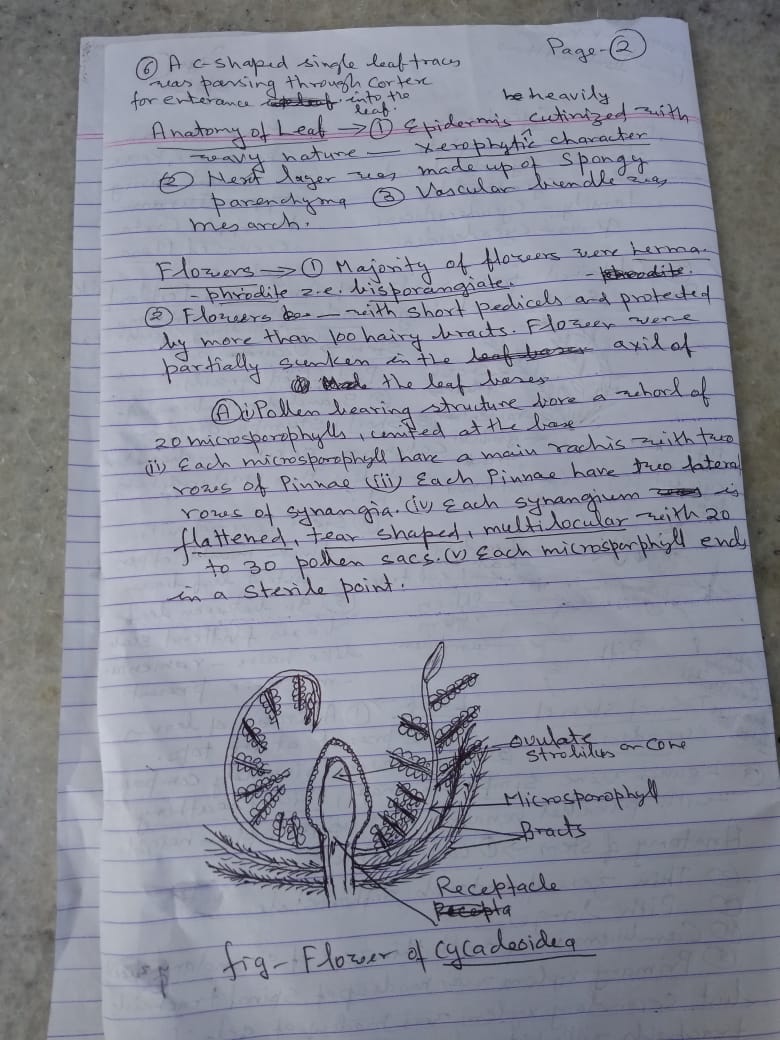 Page-②
⑥ A c-shaped single leaf traces
was passing through Cortex
for enterance into the
leaf.
Anatomy of Leaf → ① Epidermis heavily cutinized with
wavy nature — xerophytic character
② Next layer was made up of spongy
parenchyma ③ Vascular bundle was
mesarch.
Flowers → ① Majority of flowers were herma-
-phrodite i.e. bisporangiate.
② Flowers — with short pedicels and protected
by more than 100 hairy bracts. Flower were
partially sunken in the axil of
the leaf bases
Ⓐ (i) Pollen bearing structure bore a whorl of
20 microsporophylls, united at the base
(ii) Each microsporophyll have a main rachis with two
rows of Pinnae (iii) Each Pinnae have two lateral
rows of synangia. (iv) Each synangium is
flattened, tear shaped, multilocular with 20
to 30 pollen sacs. (v) Each microsporphyll ends
in a sterile point.
Ovulate
strobilus or cone
Microsporophyll
Bracts
Receptacle
fig- Flower of Cycadeoidea